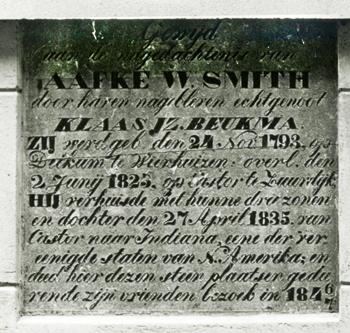 Gewyd
aan de nagedachtenis van
AAFKE W. SMITH
door haren nagebleven echtgenoot
KLAAS JZ. BEUKMA
ZIJ werd geb. den 24 Nov. 1793, op
Bokum te Vierhuizen: overl. den
2 Junij 1825, op Castor te Zuurdijk
HIJ verhuisde met hunne drie zonen
en dochter den 27 April 1835, van
Castor naar Indiana, eene der ver
eenigde staten van N. Amerika; en
deed hier dezen steen plaatsen gedu
rende zijn vrienden bezoek in 184 6/7